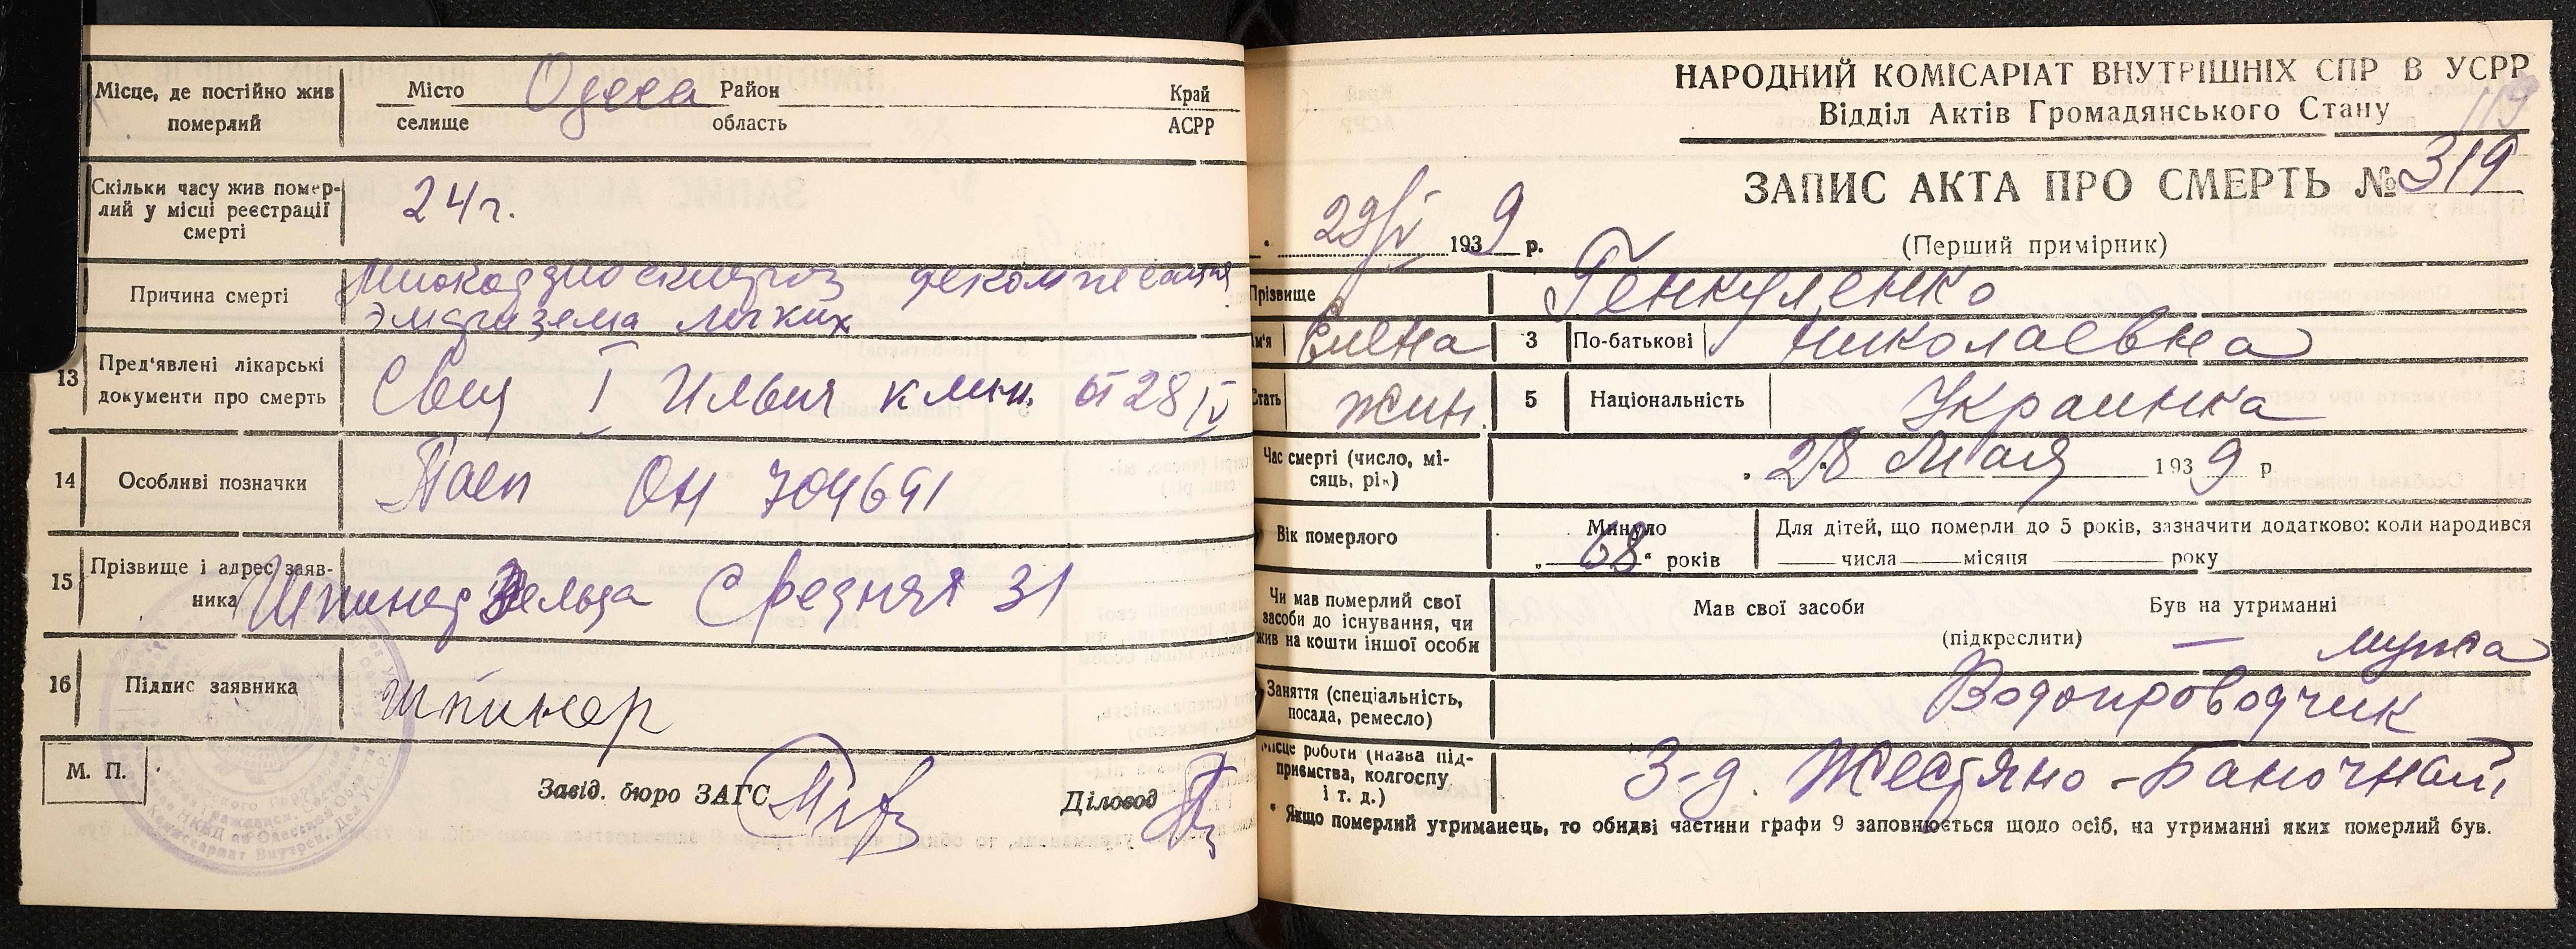 Місце, де постійно жив померлий
Місто селище
Одеса
Район область
Край АСРР
Скільки часу жив помер-
лий у місці реєстрації
смерті
24 г.
Причина смерті
Миокардиосклероз декомпесация
эмфизема легких
13
Пред'явлені лікарські
документи про смерть
I Ильич клин. от 28/V
14
Особливі позначки
Пасп ОН 704691
15
Прізвище і адрес заяв-
ника
Шпинер Зельда Средняя 31
16
Підпис заявника
Шпинер
М. П.
Завід. бюро ЗАГС
Діловод
НАРОДНИЙ КОМІСАРІАТ ВНУТРІШНІХ СПР В УСРР
Відділ Актів Громадянського Стану
119
ЗАПИС АКТА ПРО СМЕРТЬ № 319
29/V 1939 р.
(Перший примірник)
Прізвище
Генкуленко
Ім'я
Елена
3
По-батькові
Николаевна
Стать
жин.
5
Національність
Украинка
Час смерті (число, мі-
сяць, рік)
28 Мая 1939 р
Вік померлого
Минуло
„ 68 " років
Для дітей, що померли до 5 років, зазначити додатково: коли народився
числа місяця року
Чи мав померлий свої
засоби до існування, чи
жив на кошти іншої особи
Мав свої засоби
Був на утриманні
(підкреслити)
мужа
Заняття (спеціальність,
посада, ремесло)
Водопроводчик
Місце роботи (назва під-
приємства, колгоспу
і т. д.)
З-д. Жестяно-Баночный
* Якщо померлий утриманець, то обидві частини графи 9 заповнюється щодо осіб, на утриманні яких померлий був.